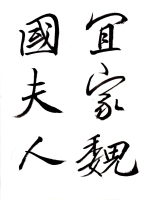 宜家魏
國夫人